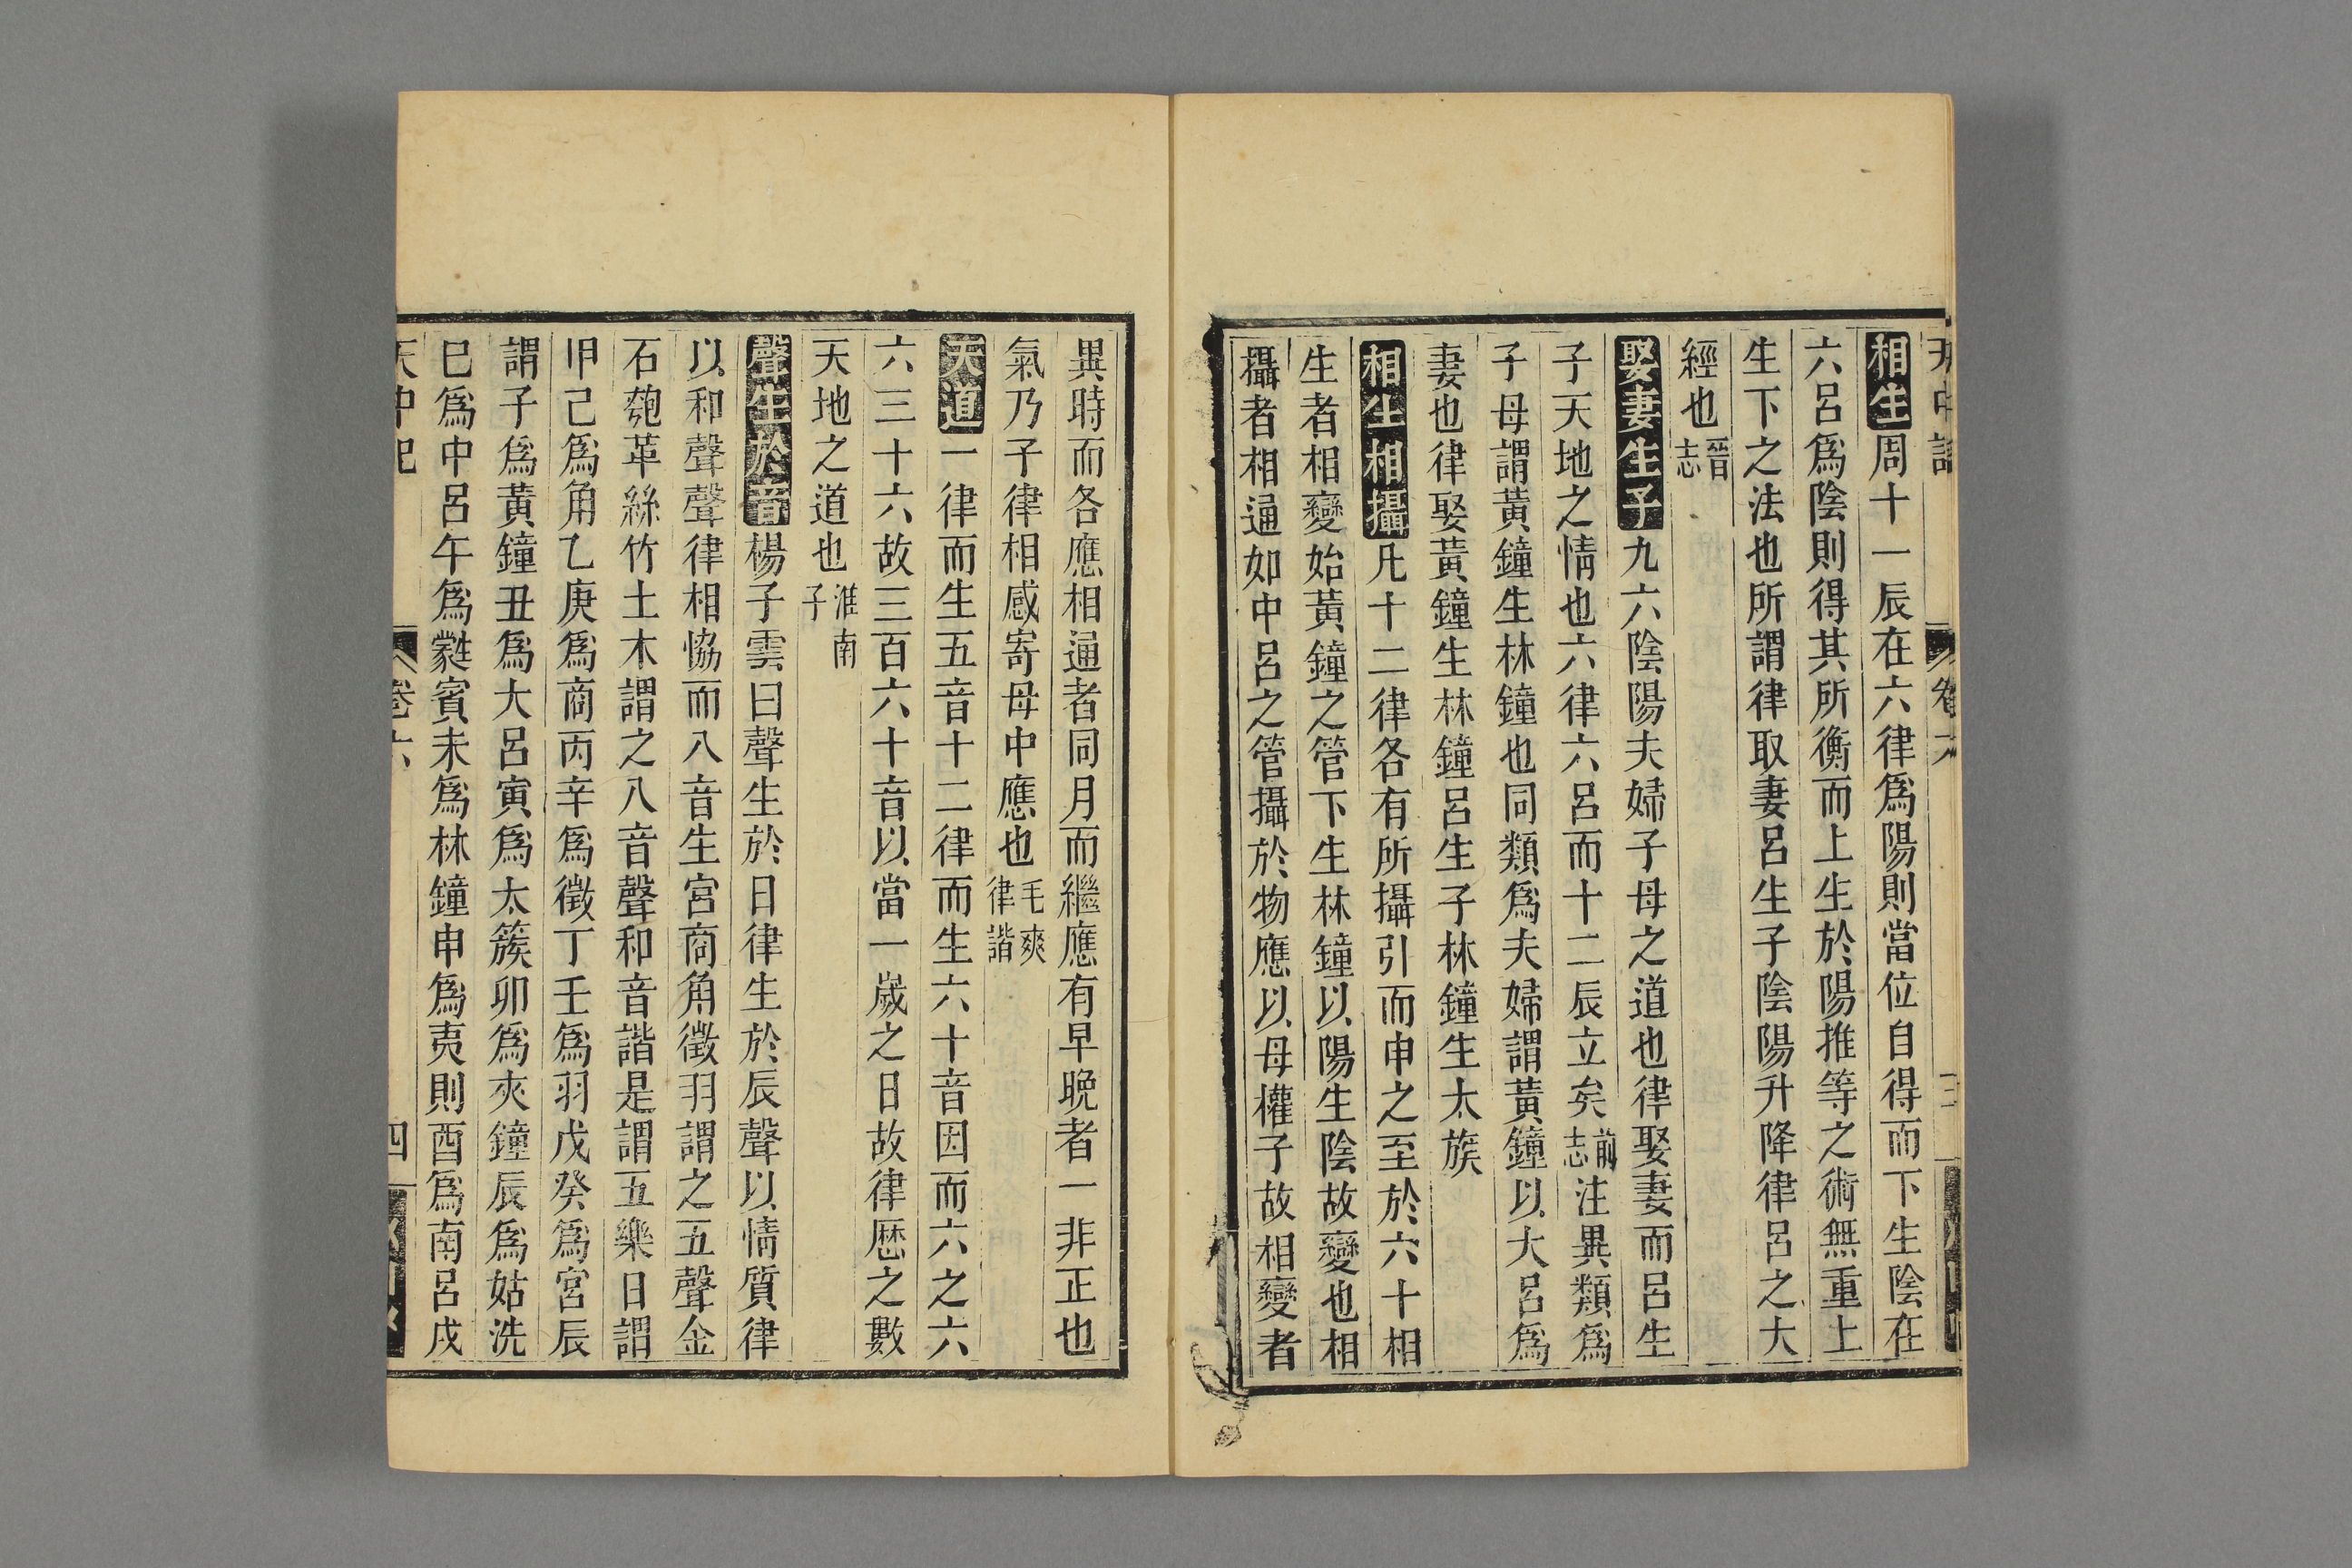 天中記
卷六
三
相生周十一辰在六律爲陽則當位自得而下生陰在
六呂爲陰則得其所衡而上生於陽推等之術無重上
生下之法也所謂律取妻呂生子陰陽升降律呂之大
經也晉志
娶妻生子九六陰陽夫婦子母之道也律娶妻而呂生
子天地之情也六律六呂而十二辰立矣前志注異類爲
子母謂黃鐘生林鐘也同類爲夫婦謂黃鐘以大呂爲
妻也律娶黃鐘生林鐘呂生子林鐘生太簇
相生相攝凡十二律各有所攝引而申之至於六十相
生者相變始黃鐘之管下生林鐘以陽生陰故變也相
攝者相通如中呂之管攝於物應以母權子故相變者
異時而各應相通者同月而繼應有早晚者一非正也
氣乃子律相感寄母中應也毛爽律譜
天道一律而生五音十二律而生六十音因而六之六
六三十六故三百六十音以當一歲之日故律歷之數
天地之道也淮南子
聲生於音楊子雲曰聲生於日律生於辰聲以情質律
以和聲聲律相恊而八音生宮商角徵羽謂之五聲金
石匏革絲竹土木謂之八音聲和音諧是謂五樂日謂
甲己爲角乙庚爲商丙辛爲徵丁壬爲羽戊癸爲宮辰
謂子爲黃鐘丑爲大呂寅爲太簇卯爲夾鐘辰爲姑洗
巳爲中呂午爲蕤賓未爲林鐘申爲夷則酉爲南呂戌
天中記
卷六
四